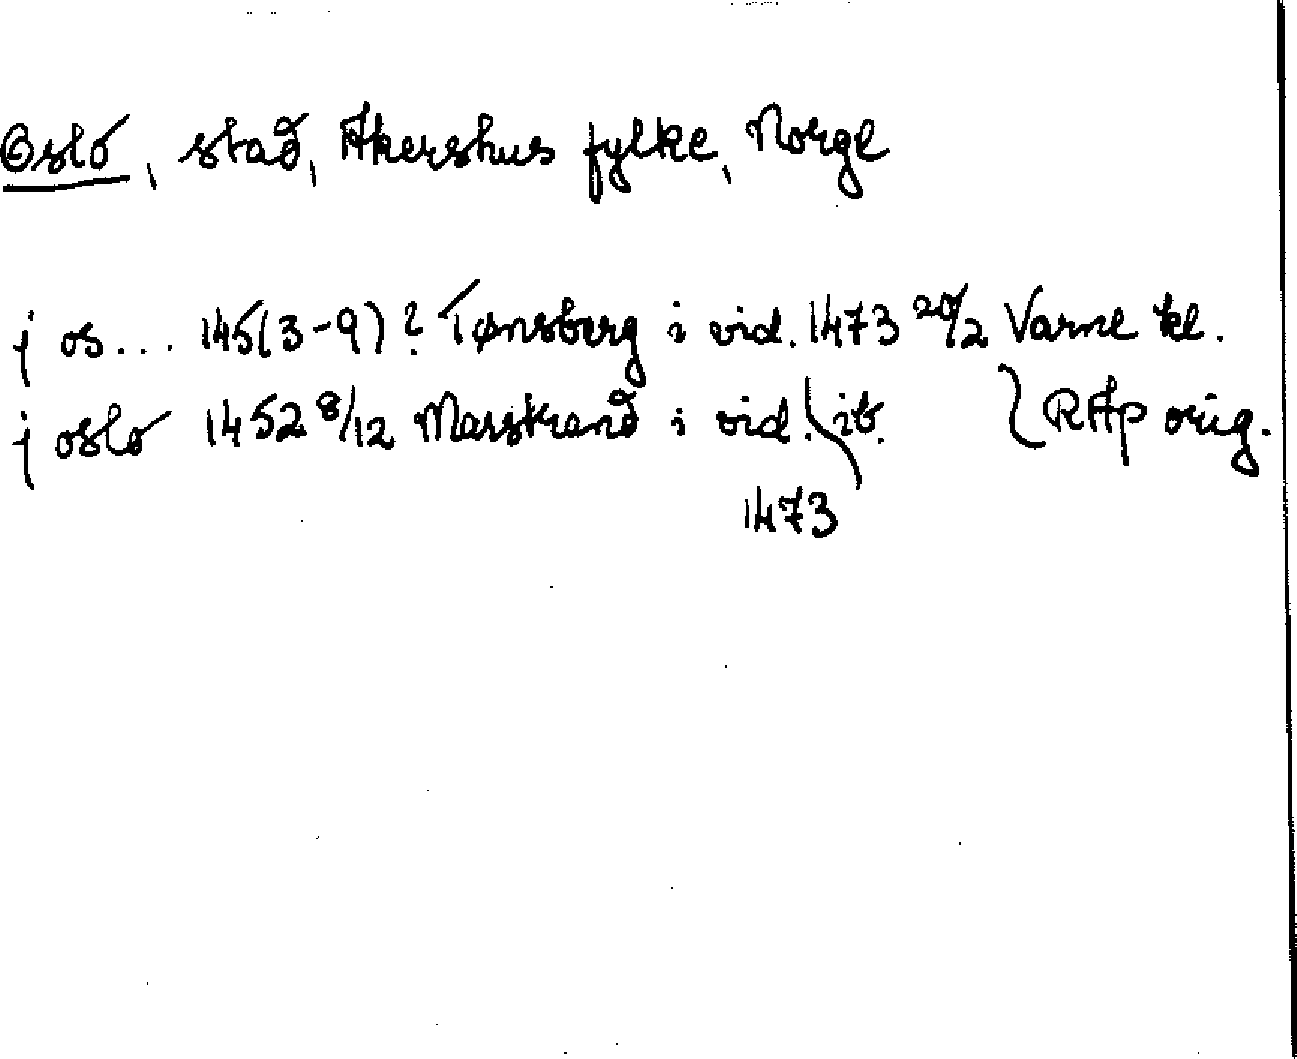 Oslo, stad, Akershus fylke, Norge
j os... 145(3-9)? Tønsberg i vid. 1473 20/2 Varne kl.
j oslo 1452 8/12 Marstrand i vid. ib. } RAp orig.
1473